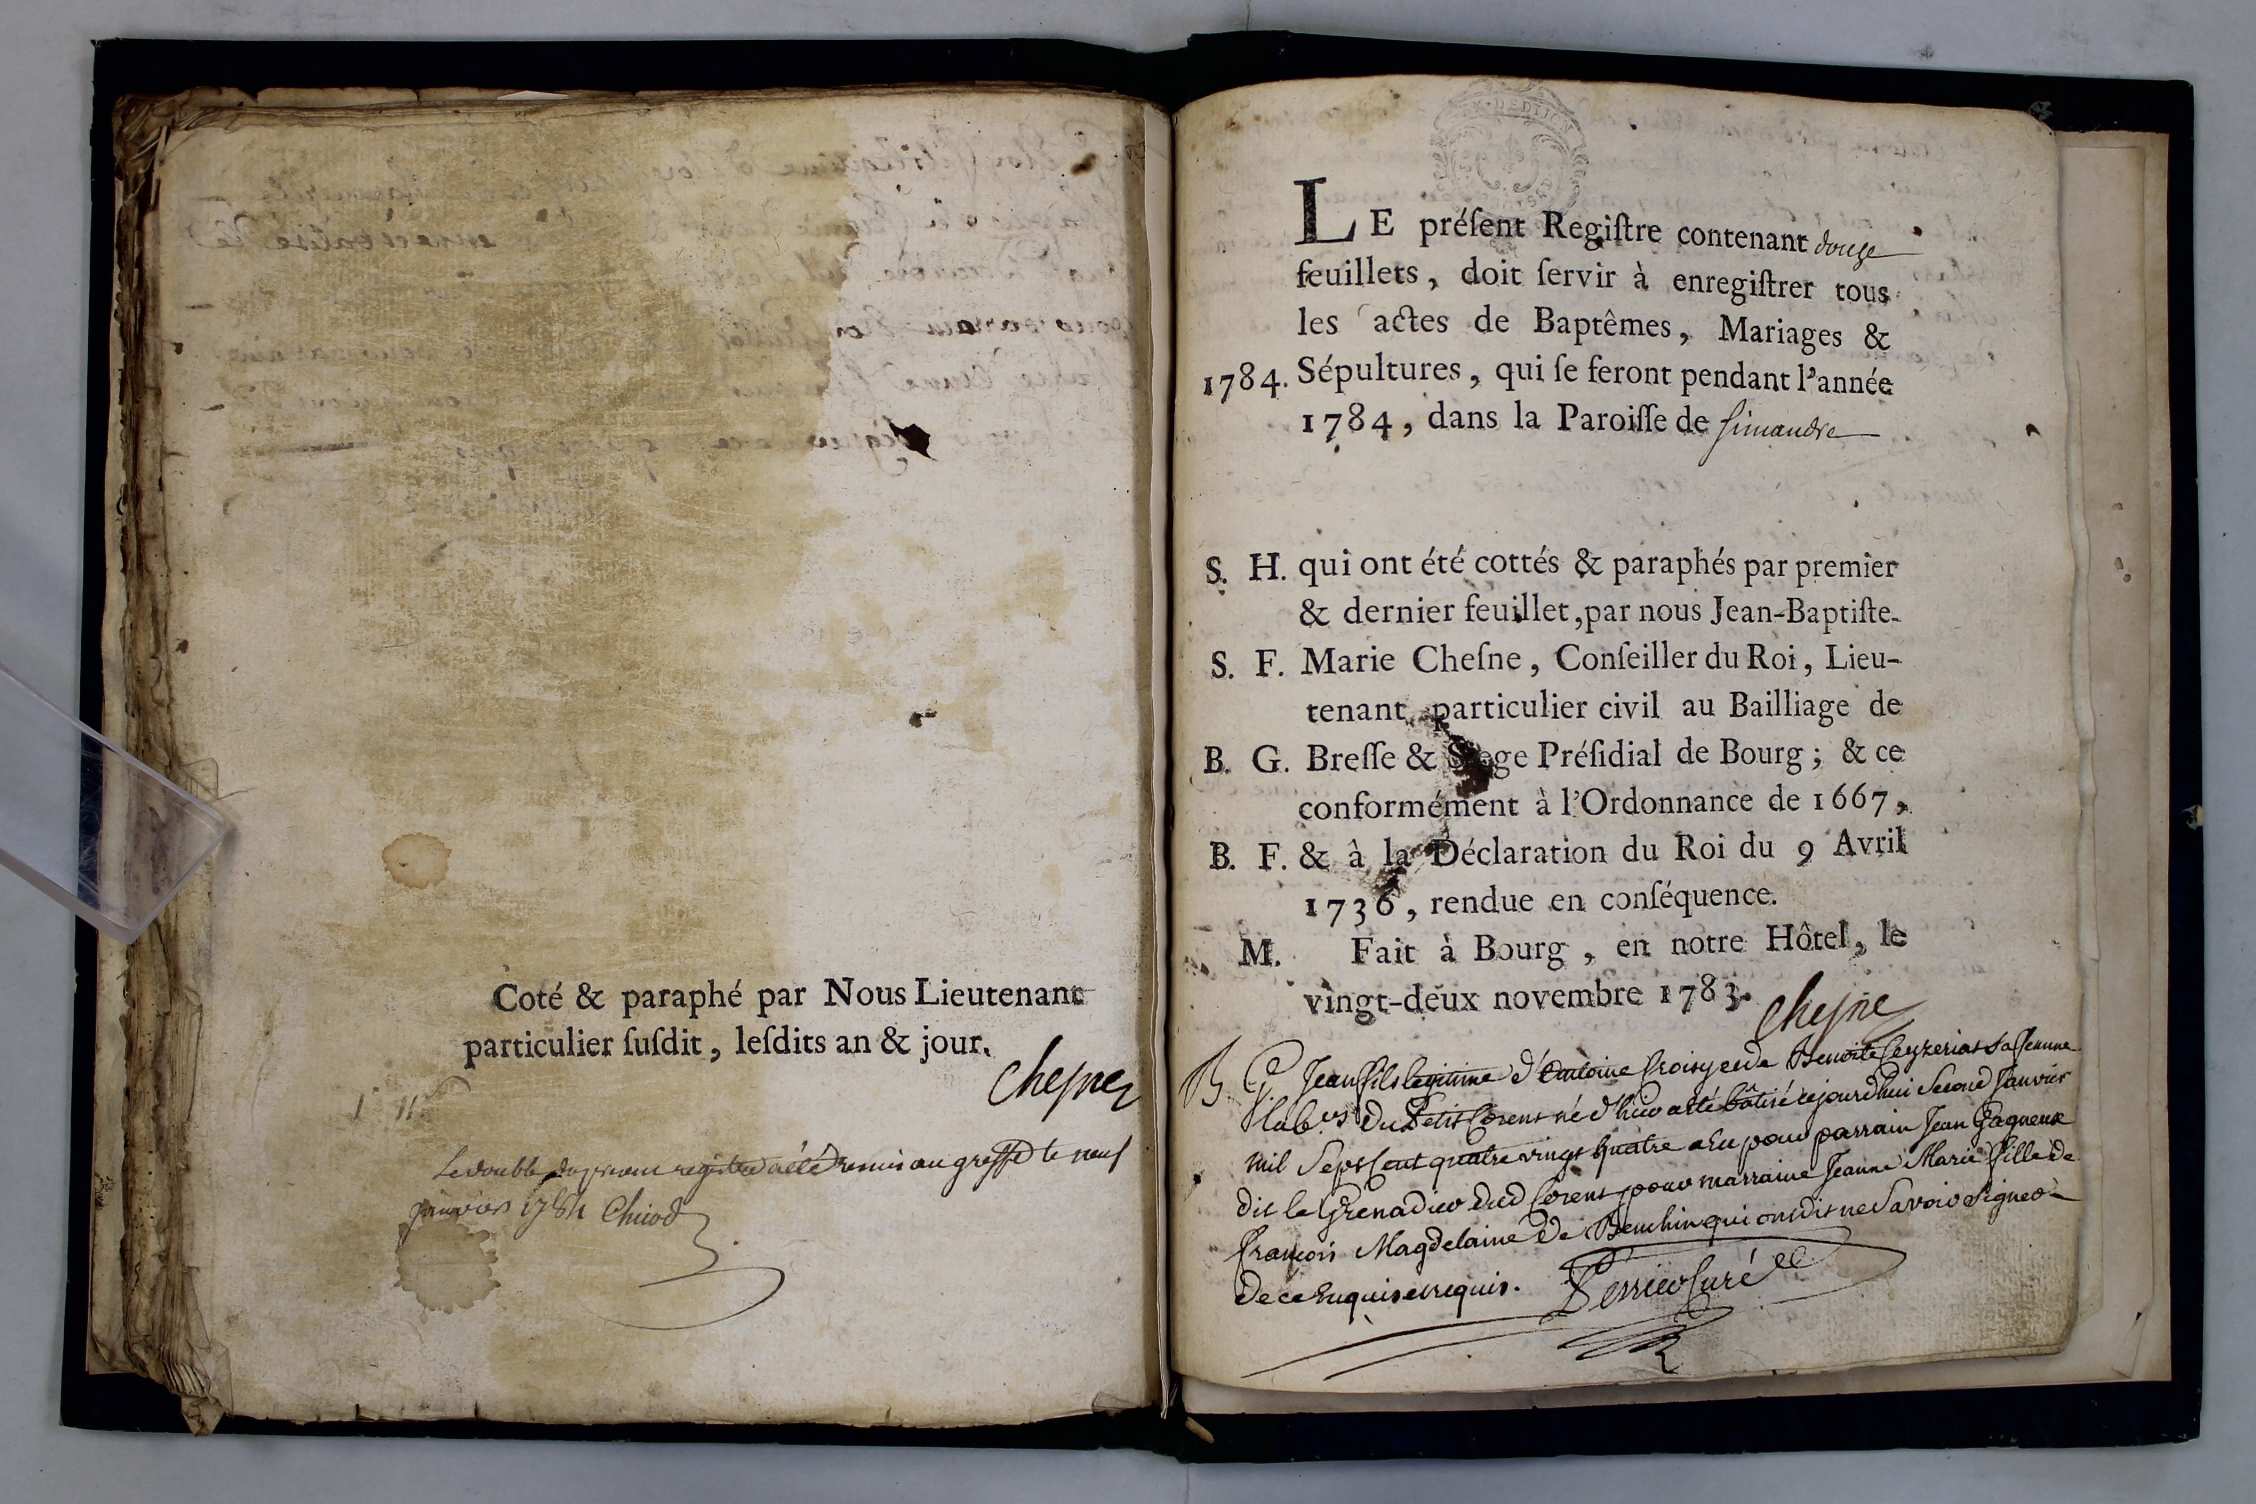 Coté & paraphé par Nous Lieutenant
particulier suſdit, leſdits an & jour.
Chesne
Le double du présent registre a été remis au greffe le neuf
janvier 1784 Chicod
LE préſent Regiſtre contenant douze
feuillets, doit ſervir à enregiſtrer tous
les actes de Baptêmes, Mariages &
1784. Sépultures, qui ſe feront pendant l'année
1784, dans la Paroiſſe de simandre
S. H. qui ont été cottés & paraphés par premier
& dernier feuillet, par nous Jean-Baptiſte-
S. F. Marie Cheſne, Conſeiller du Roi, Lieu-
tenant particulier civil au Bailliage de
B. G. Breſſe & Siege Préſidial de Bourg ; & ce
conformément à l'Ordonnance de 1667,
B. F. & à la Déclaration du Roi du 9 Avril
1736, rendue en conſéquence.
M. Fait à Bourg, en notre Hôtel, le
vingt-deux novembre 1783.
Chesne
B G Jean fils legitime d'Antoine froisy et de Benoite Ceyzeriat Sa femme
lab.rs du Petit Corent né d'hier a été bâtisé cejourd'hui Second Janvier
mil Sept Cent quatre vingt quatre a Eu pour parrain Jean Gagneux
dit le Grenadier dud Corent pour marraine Jeanne Marie fille de
françois Magdelaine de qui ont dit ne Savoir Signer
de ce Enquis et requis. Perrier Curé